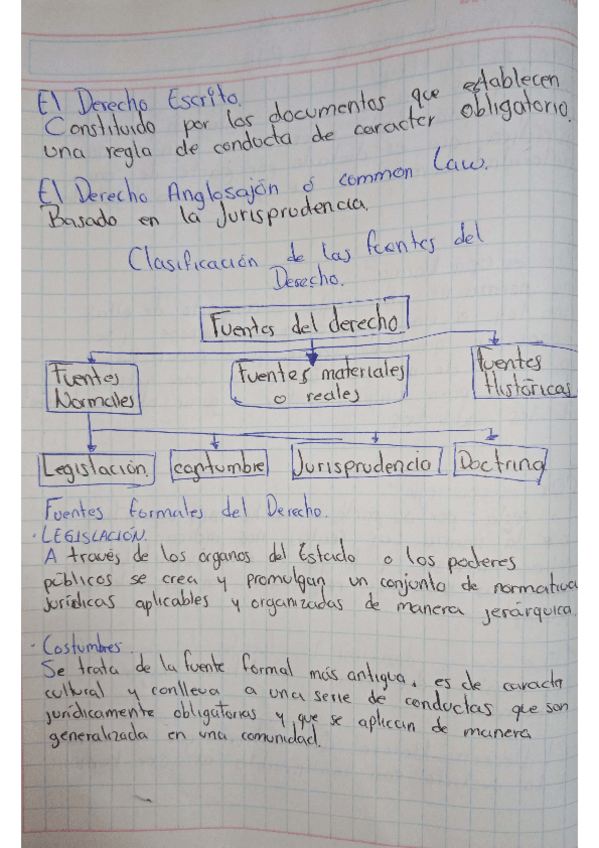 El Derecho Escrito.
Constituido por los documentos que establecen
una regla de conducta de caracter obligatorio.
El Derecho Anglosajón ó common Law.
Basado en la Jurisprudencia.
Clasificación de las fuentes del
Derecho.
Fuentes del derecho
Fuentes
Normales
Fuentes materiales
o reales
fuentes
Históricas
Legislación
costumbre
Jurisprudencia
Doctrina
Fuentes formales del Derecho.
· LEGISLACIÓN.
A través de los organos del Estado o los poderes
públicos se crea y promulgan un conjunto de normativa
jurídicas aplicables y organizadas de manera jerárquica.
· Costumbres.
Se trata de la fuente formal más antigua, es de caracter
cultural y conlleva a una serie de conductas que son
jurídicamente obligatorias y que se aplican de manera
generalizada en una comunidad.